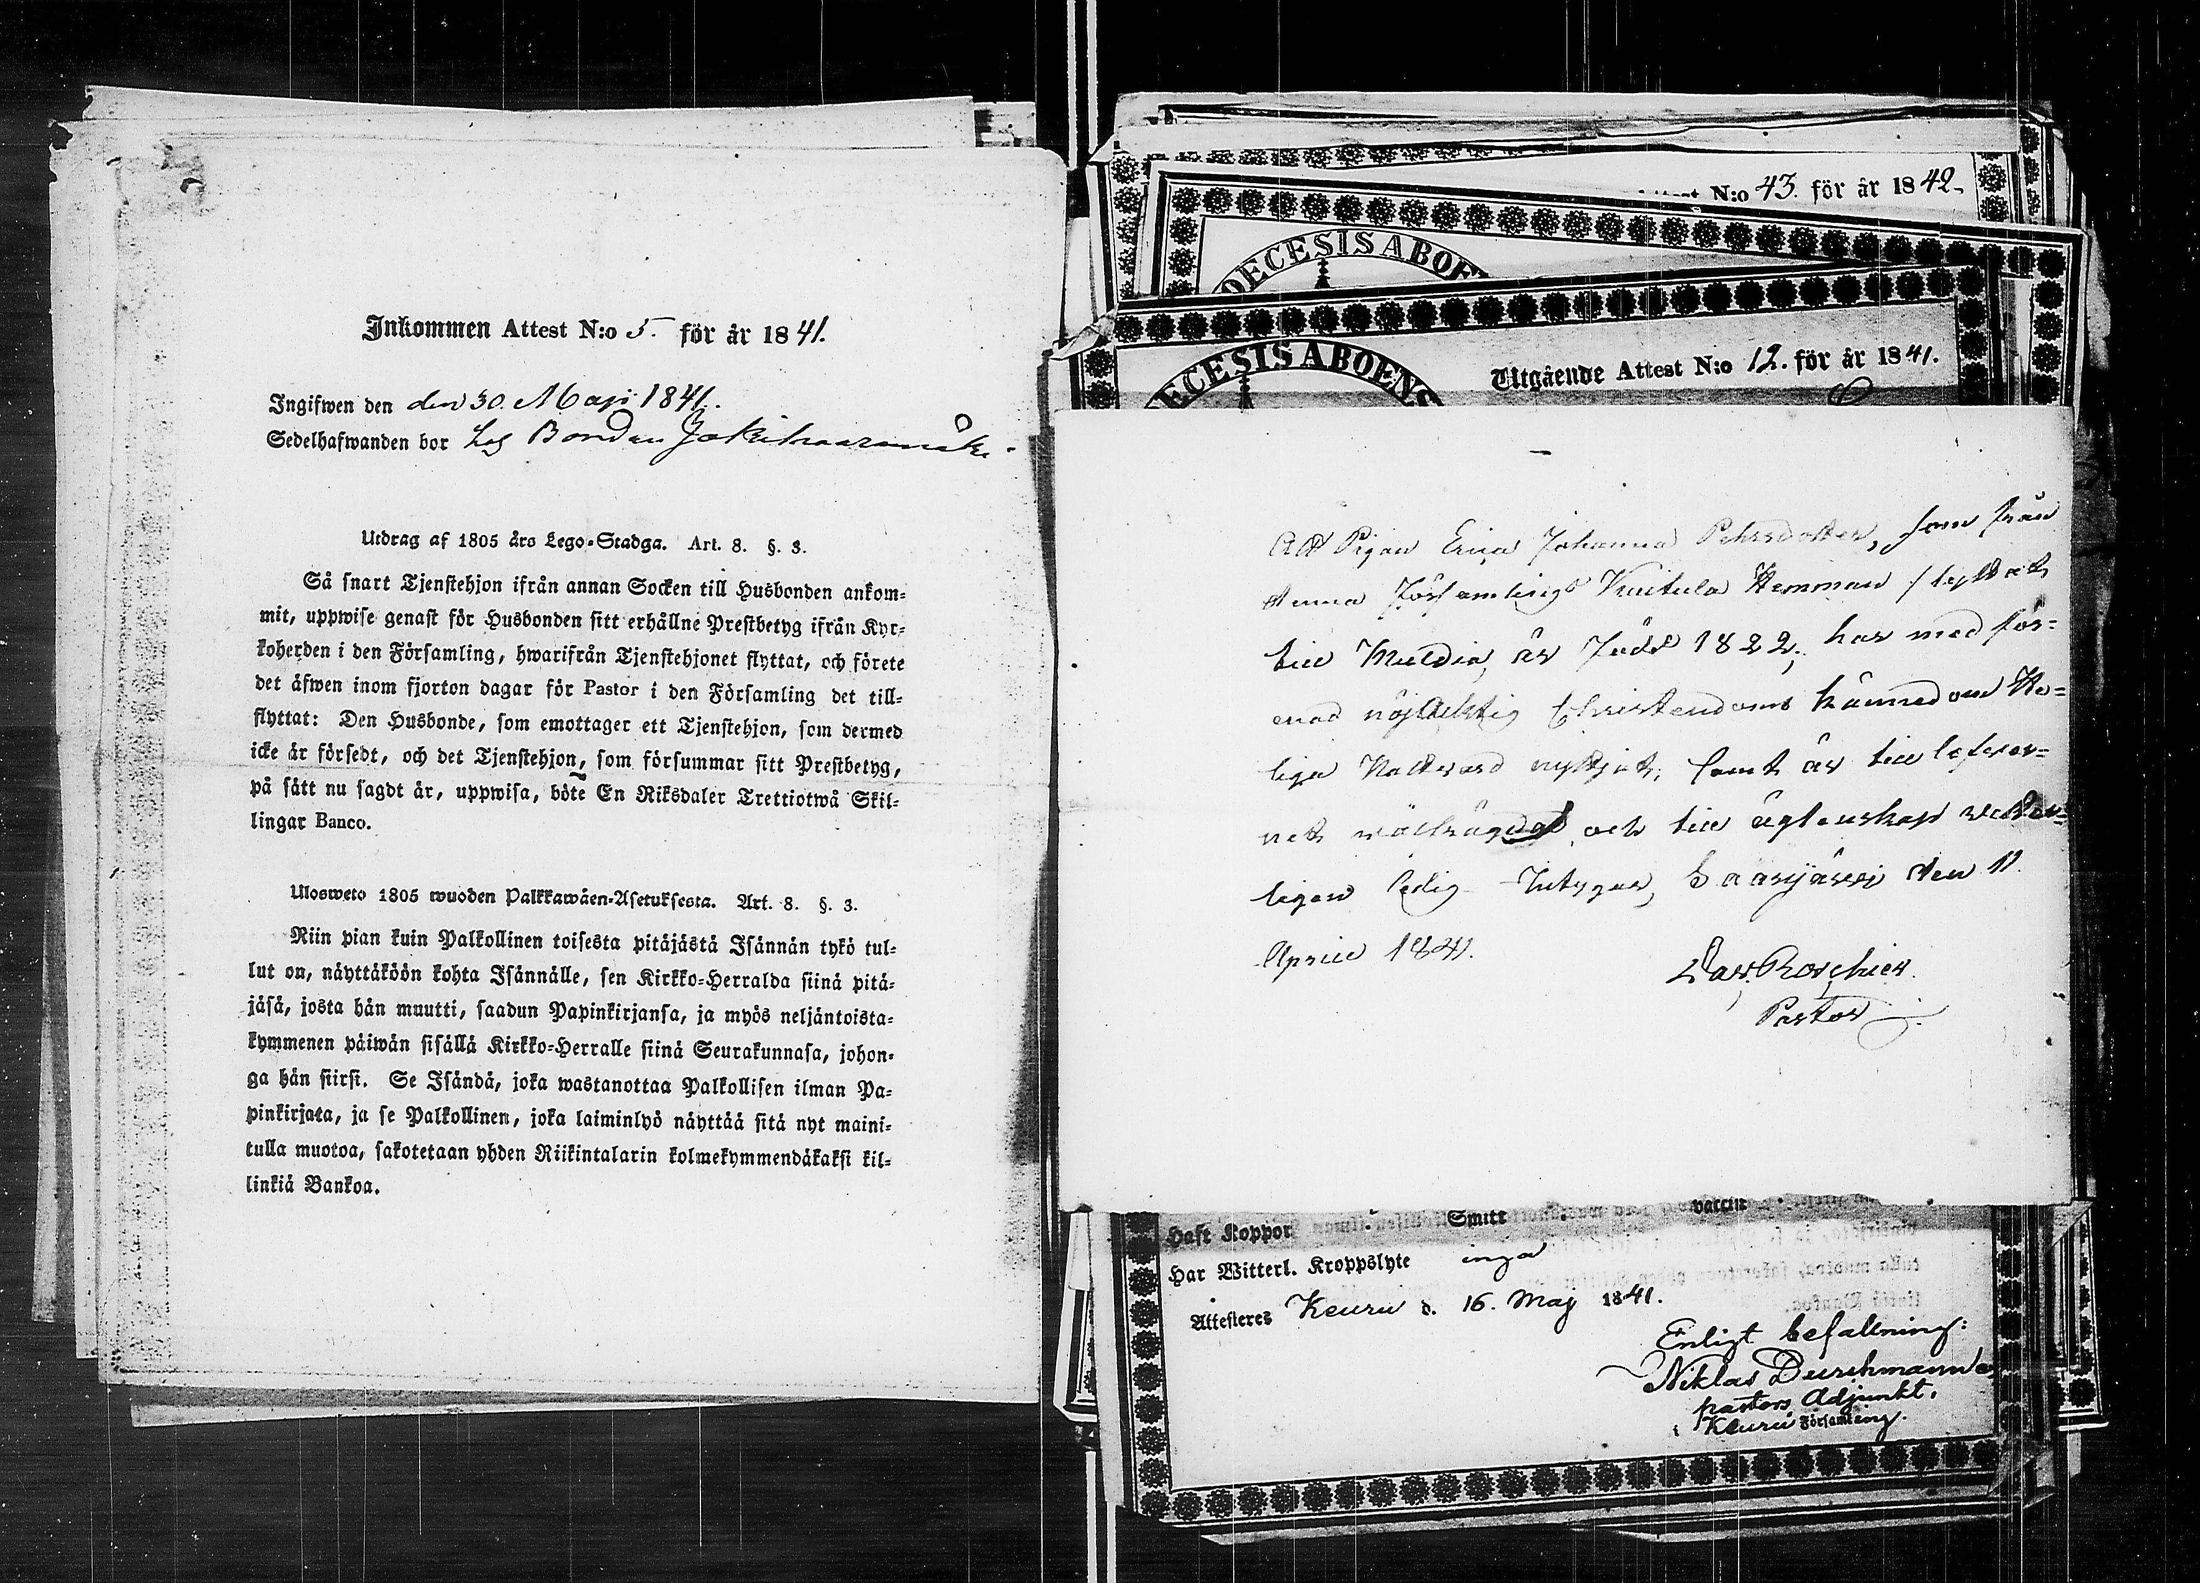 Inkommen Attest N:o 5. för år 1841.
Ingifwen den den 30. Maji 1841.
Sedelhafwanden bor hos Bonden
Utdrag af 1805 års Lego-Stadga. Art. 8. §. 3.
Så snart Tjenstehjon ifrån annan Socken till Husbonden ankom-
mit, uppwise genast för Husbonden sitt erhållne Prestbetyg ifrån Kyr-
koherden i den Församling, hwarifrån Tjenstehjonet flyttat, och förete
det äfwen inom fjorton dagar för Pastor i den Församling det till-
flyttat: Den Husbonde, som emottager ett Tjenstehjon, som dermed
icke är försedt, och det Tjenstehjon, som försummar sitt Prestbetyg,
på sätt nu sagdt är, uppwisa, böte En Riksdaler Trettiotwå Skil-
lingar Banco.
Ulosweto 1805 wuoden Palkkawäen-Asetuksesta. Art. 8. §. 3.
Niin pian kuin Palkollinen toisesta pitäjästä Isännän tykö tul-
lut on, näyttäköön kohta Isännälle, sen Kirkko-Herralda siinä pitä-
jäsä, josta hän muutti, saadun Papinkirjansa, ja myös neljäntoista-
kymmenen päiwän sisällä Kirkko-Herralle siinä Seurakunnasa, johon-
ga hän siirsi. Se Isändä, joka wastanottaa Palkollisen ilman Pa-
pinkirjata, ja se Palkollinen, joka laiminlyö näyttää sitä nyt maini-
tulla muotoa, sakotetaan yhden Riikintalarin kolmekymmendäkaksi kil-
linkiä Bankoa.
Attest N:o 43. för år 1842.
OECESIS ABOE
ECESIS ABOENS
Utgående Attest N:o 12. för år 1841.
Att Pigan Erica Johanna Pehrsdotter, som från
denna Församlings Hemman flyttat
till Multia, är född 1822, har med för-
enad nöjaktig Christendoms kännedom He-
liga Nattvard nyttjat, samt är till lefver-
net wälfrägdad och till ägtenskap veter-
ligen ledig Intygar, Saarijärvi den 11.
April 1841.
Roschier.
Pastor
Haft Koppor Smitt vaccin
Har Witterl. Kroppslyte inga
Attesteres Keuru d. 16. Maj 1841.
Enligt befallning:
Niklas Durchman
pastors Adjunkt.
i Keuru Församling.